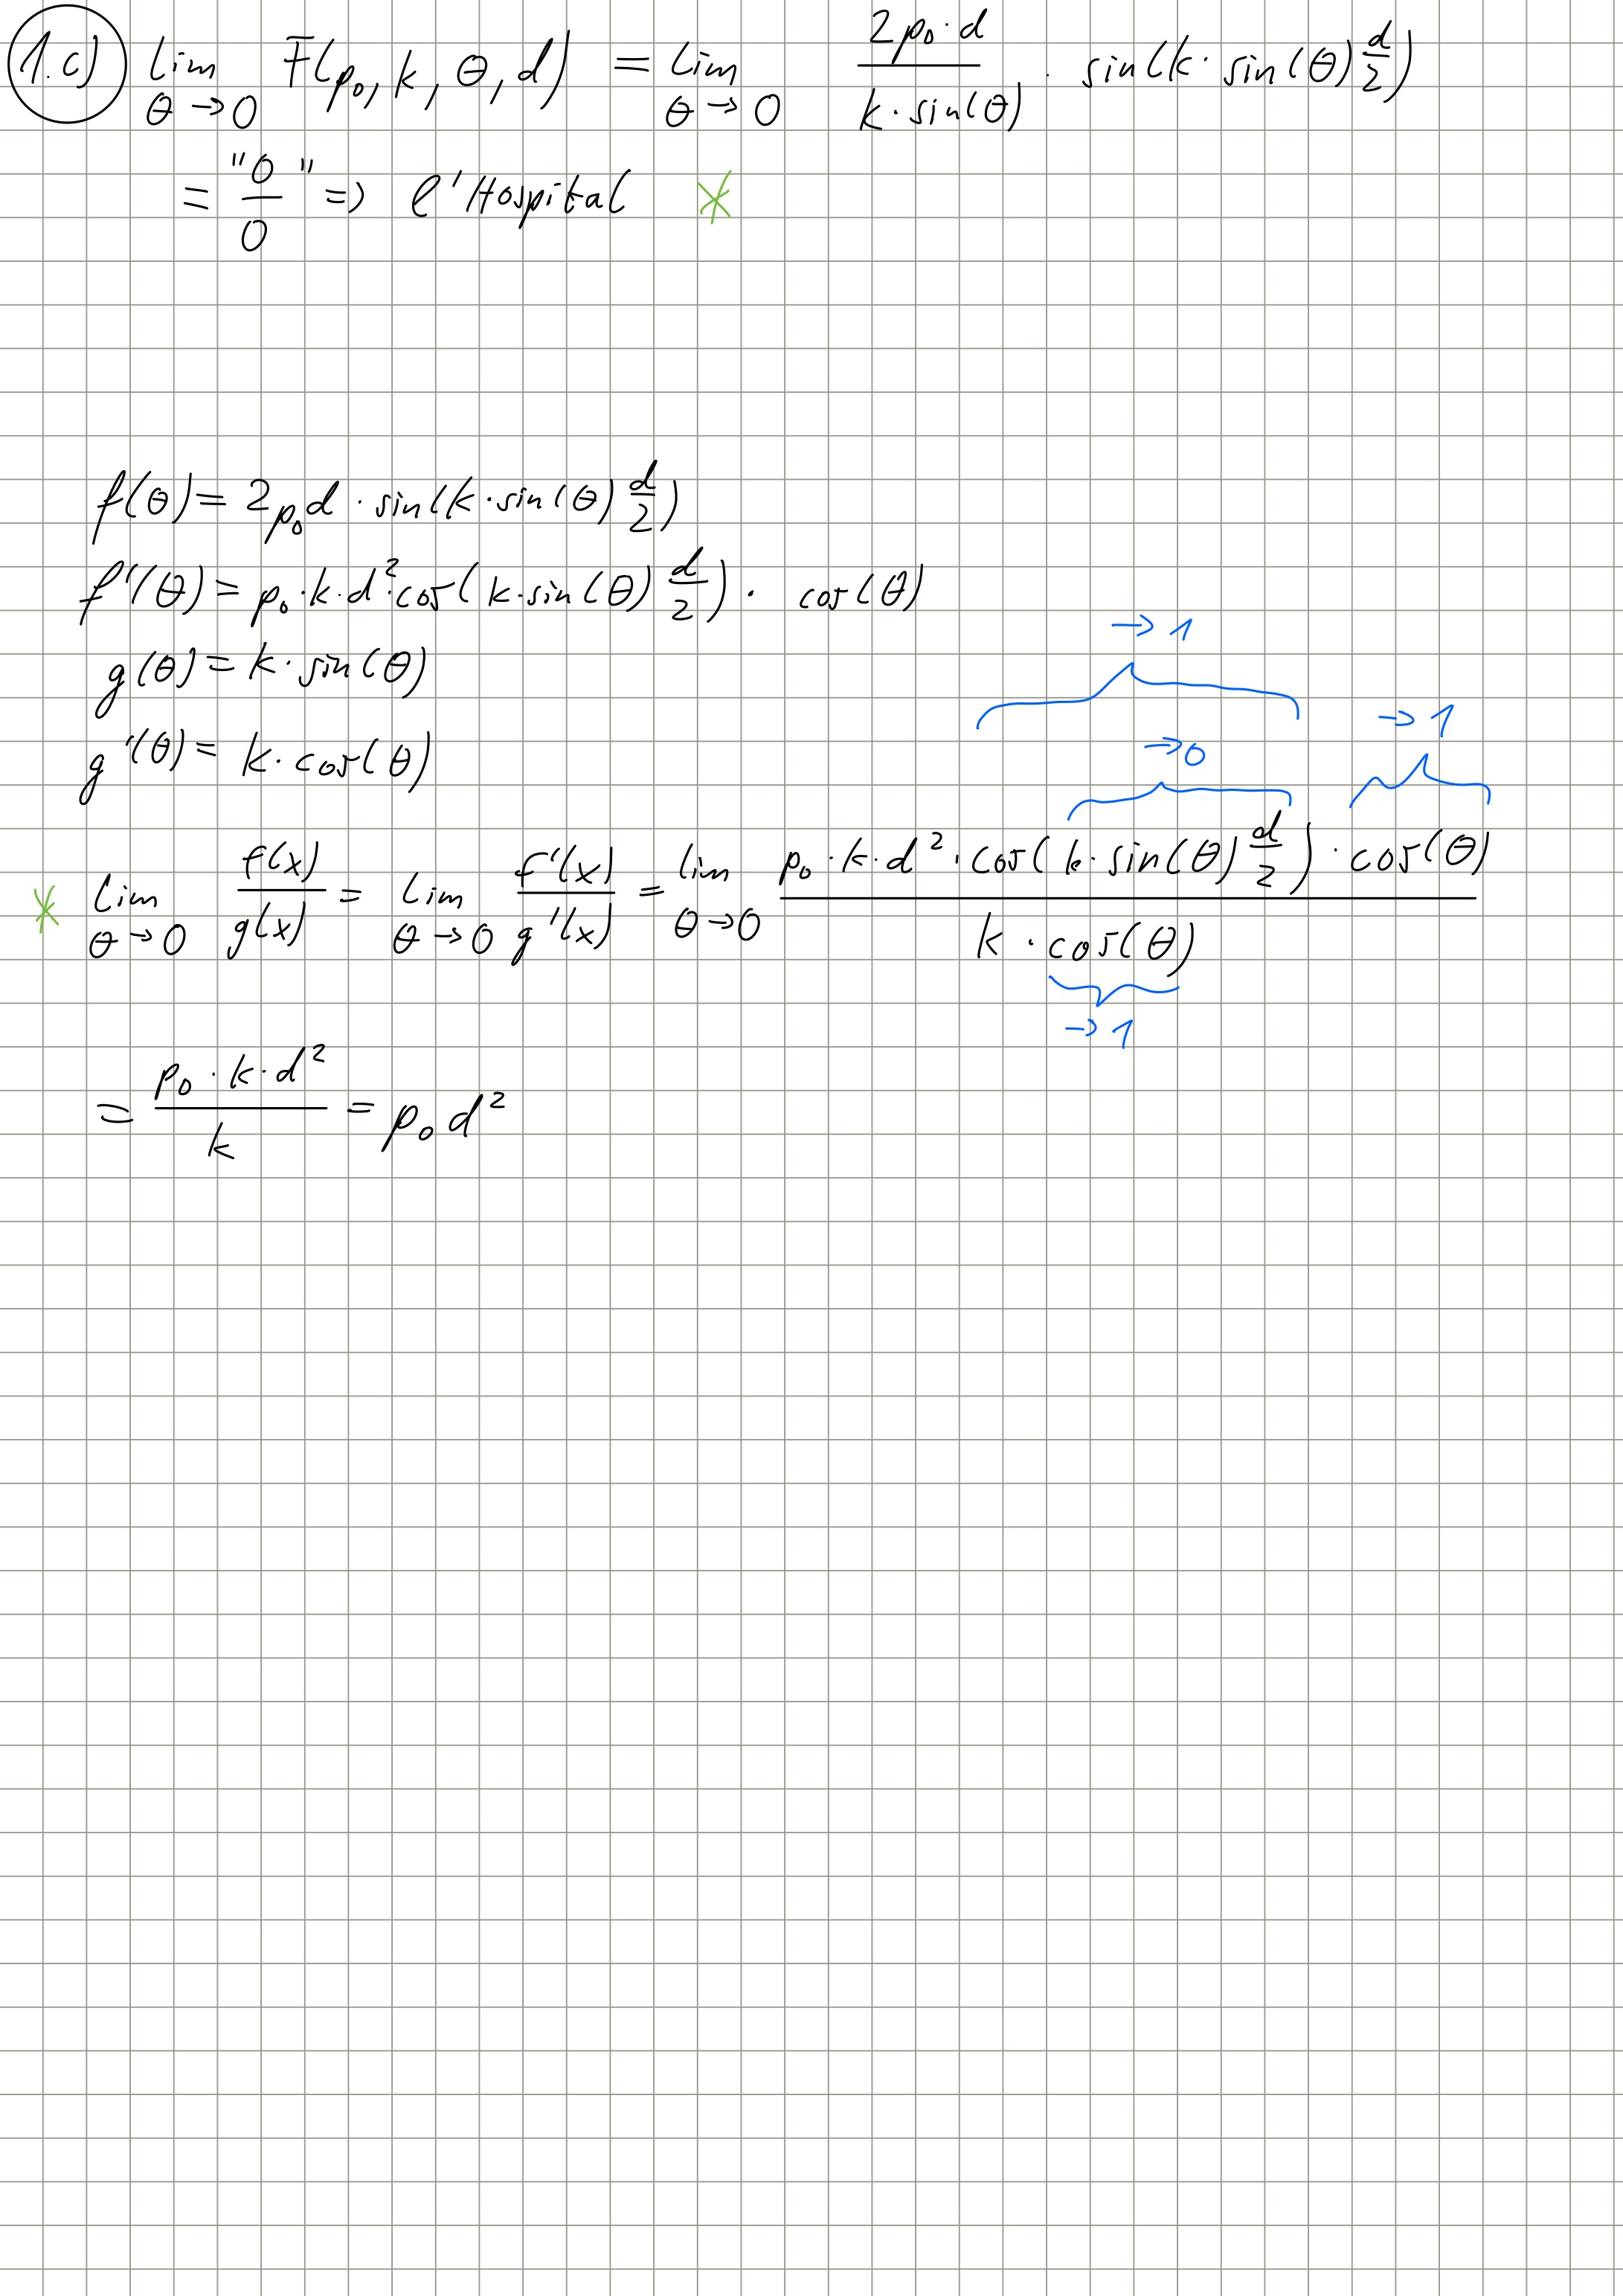 1.c) lim θ→0 F(p₀, k, θ, d) = lim θ→0 2p₀·d / k·sin(θ) · sin(k·sin(θ) d/2)
= "0/0" => l'Hospital *
f(θ) = 2p₀d · sin(k·sin(θ) d/2)
f'(θ) = p₀·k·d²·cos(k·sin(θ) d/2) · cos(θ)
g(θ) = k·sin(θ)
g'(θ) = k·cos(θ)
→1
→0 →1
* lim θ→0 f(x)/g(x) = lim θ→0 f'(x)/g'(x) = lim θ→0 p₀·k·d²·cos(k·sin(θ) d/2)·cos(θ) / k·cos(θ)
→1
= p₀·k·d² / k = p₀d²